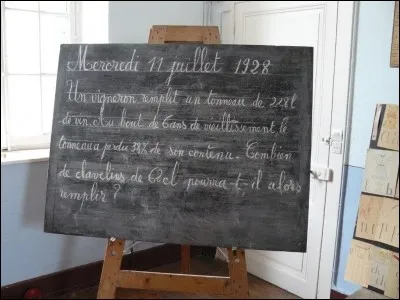 Mercredi 11 juillet 1928
Un vigneron remplit un tonneau de 228l
de vin. Au bout de 6 ans de vieillissement le
tonneau a perdu 38% de son contenu. Combien
de clavelins de 62cl pourra-t-il alors
remplir ?